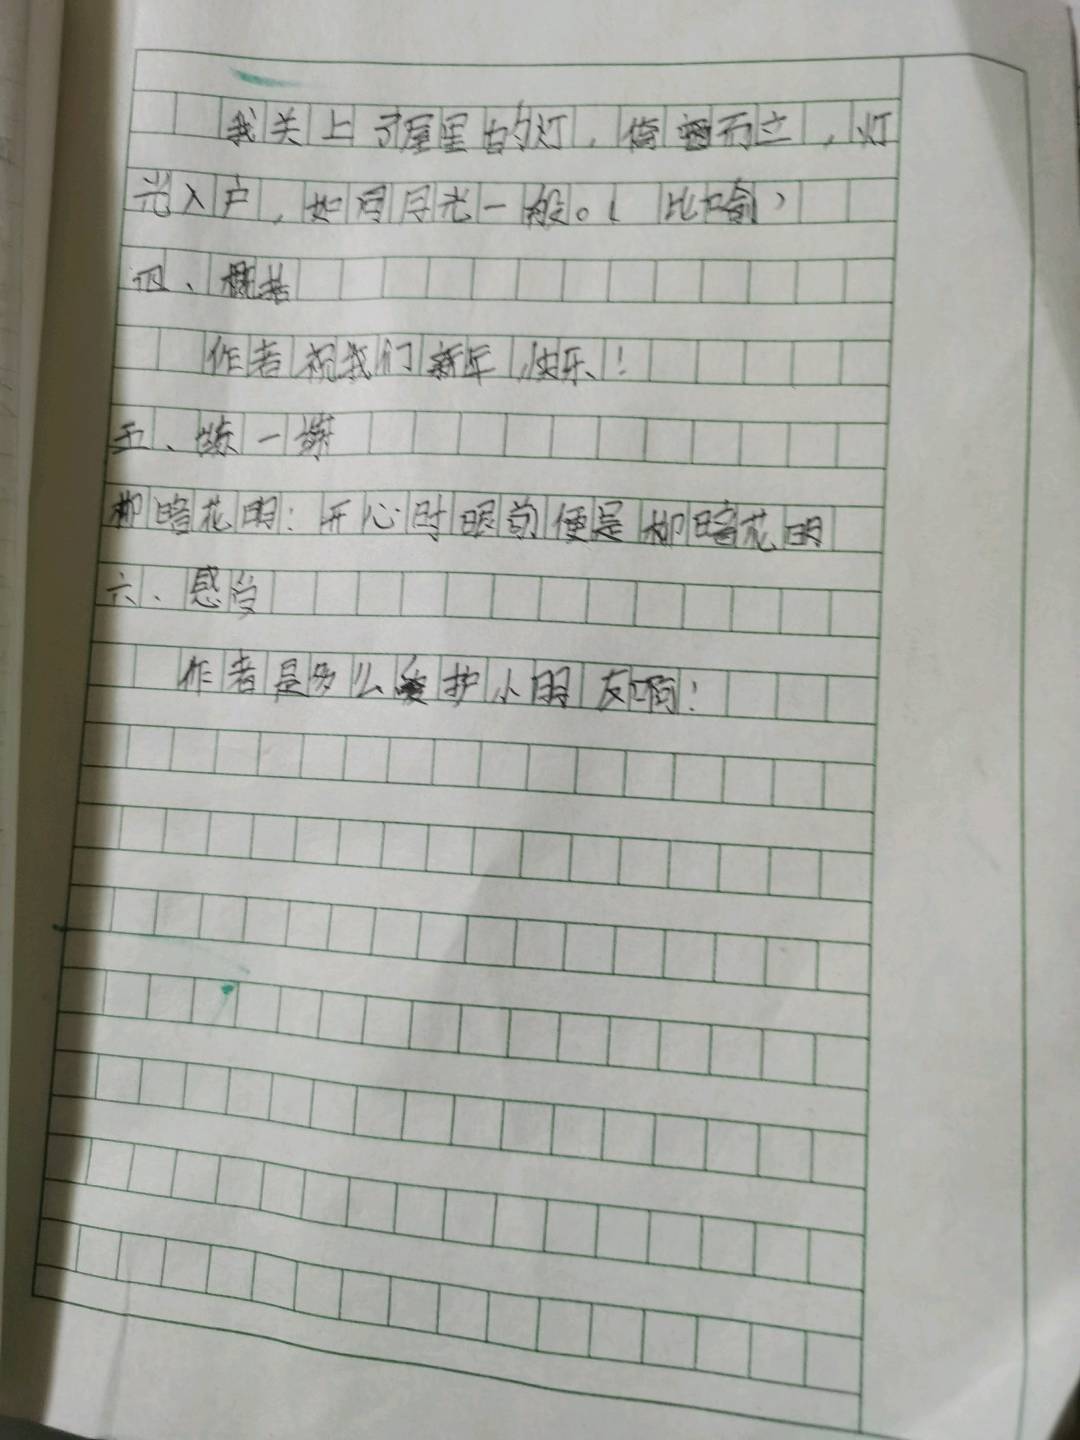 我关上了屋里的灯，倚窗而立，灯
光入户，如同月光一般。（比喻）
四、概括
作者祝我们新年快乐！
五、练一练
柳暗花明：开心时眼前便是柳暗花明
六、感受
作者是多么爱护小朋友啊！